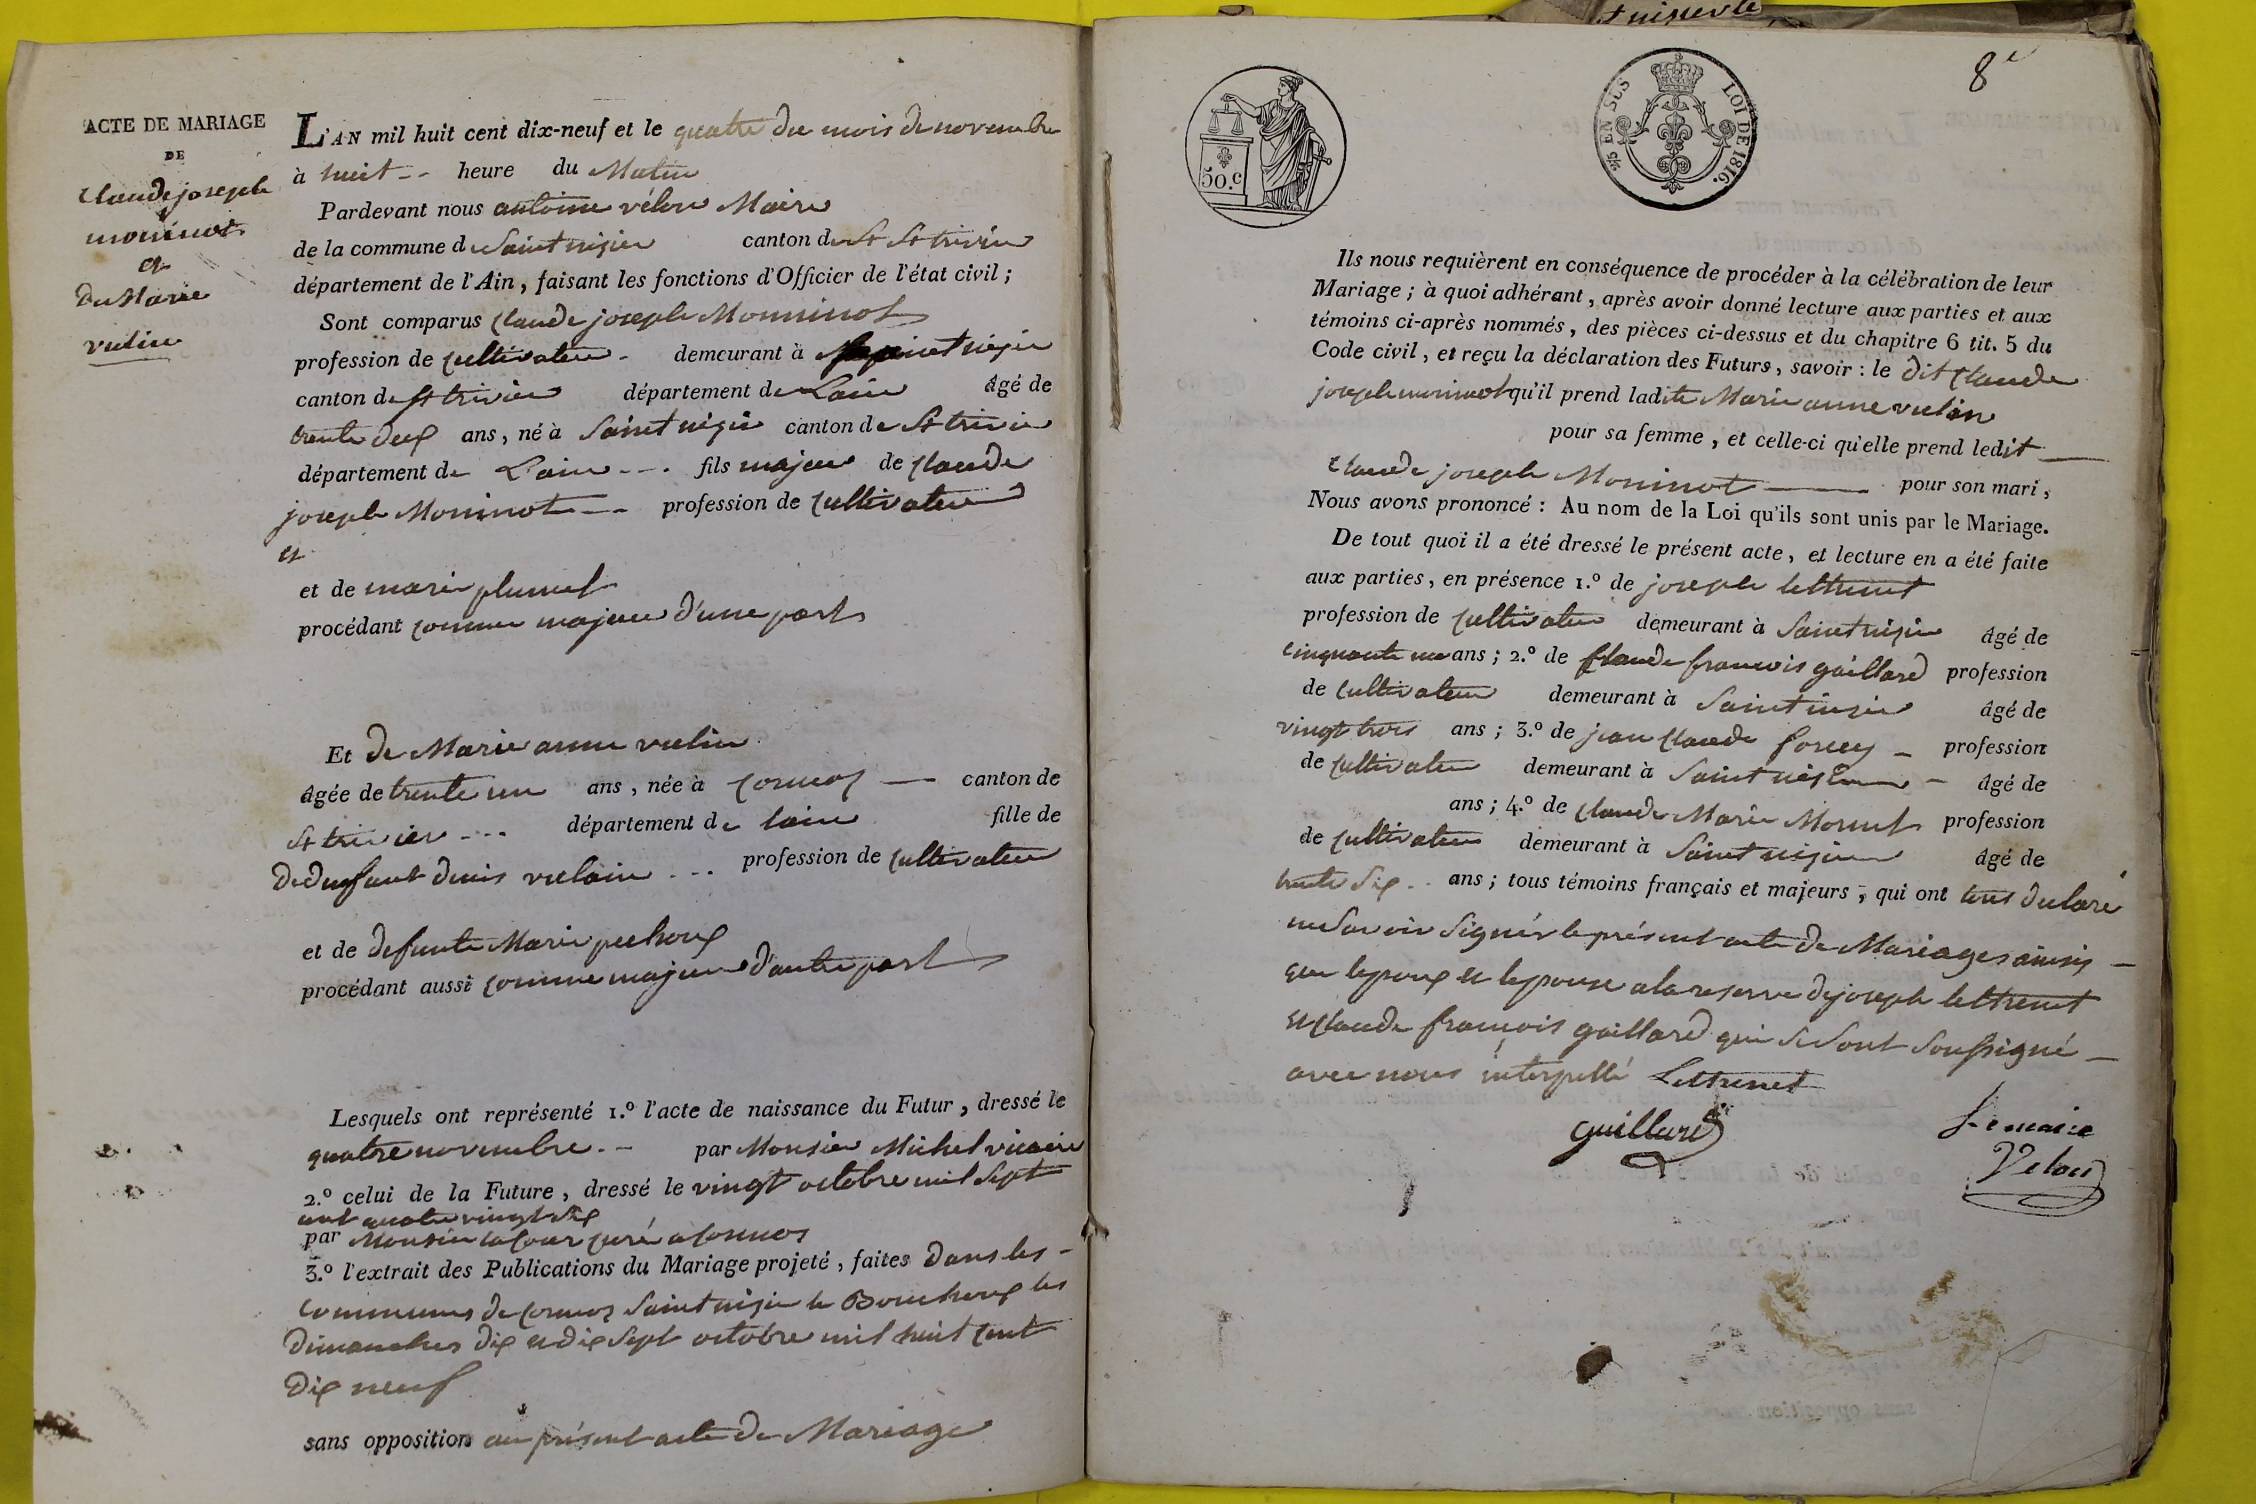 ACTE DE MARIAGE
DE
Claude joseph
moninot
et
De Marie
vulin
L'AN mil huit cent dix-neuf et le quatre du mois de novembre
à huit -- heure du Matin
Pardevant nous antoine vélon Maire
de la commune de Saint nizier canton de St St trivier
département de l'Ain, faisant les fonctions d'Officier de l'état civil ;
Sont comparus Claude joseph Monninot
profession de Cultivateur - demeurant à Saint nizier
canton de St trivier département de Lain âgé de
trente deux ans, né à Saint nizier canton de St trivier
département de Lain --- fils majeur de Claude
joseph Moninot -- profession de Cultivateur
et
et de marie plumet
procédant comme majeur d'une part
Et de Marie anne vulin
âgée de trente un ans, née à Cormoz — canton de
St trivier ---- département de lain fille de
De defunt denis vulain --- profession de Cultivateur
et de defunte Marie pechoux
procédant aussi comme majeure d'autre part
Lesquels ont représenté 1.º l'acte de naissance du Futur, dressé le
quatre novembre -- par Monsieur Michel vicaire
2.º celui de la Future, dressé le vingt octobre mil Sept
cent quatre vingt
par Monsieur curé a Cormos
3.º l'extrait des Publications du Mariage projeté, faites Dans les -
communes de Cormoz Saint nizier le Bouchoux les
Dimanches dix et dix Sept octobre mil huit Cent
Dix neuf
sans opposition au présent acte de Mariage
8e
50.c
25 EN SUS
LOI DE 1816.
Ils nous requièrent en conséquence de procéder à la célébration de leur
Mariage ; à quoi adhérant, après avoir donné lecture aux parties et aux
témoins ci-après nommés, des pièces ci-dessus et du chapitre 6 tit. 5 du
Code civil, et reçu la déclaration des Futurs, savoir : le dit Claude
joseph moninot qu'il prend ladite Marie anne vulin
pour sa femme, et celle-ci qu'elle prend ledit —
Claude joseph Moninot — pour son mari,
Nous avons prononcé : Au nom de la Loi qu'ils sont unis par le Mariage.
De tout quoi il a été dressé le présent acte, et lecture en a été faite
aux parties, en présence 1.º de joseph lettrenet
profession de Cultivateur demeurant à Saint nizier âgé de
cinquante un ans ; 2.º de Claude francois gaillard profession
de Cultivateur demeurant à Saint nizier âgé de
vingt trois ans ; 3.º de jean Claude - profession
de Cultivateur demeurant à Saint nizier - âgé de
ans ; 4.º de Claude Marie Mornet profession
de Cultivateur demeurant à Saint nizier âgé de
trente Six -- ans ; tous témoins français et majeurs, qui ont tous declaré
ne Savoir Signér le présent acte de Mariages ainsy —
que lepoux et lepouse a la reserve de joseph lettrenet
et Claude francois gaillard qui se Sont Soussigné —
avec nous interpellé Lettrenet
Guillard
Le maire
Velon